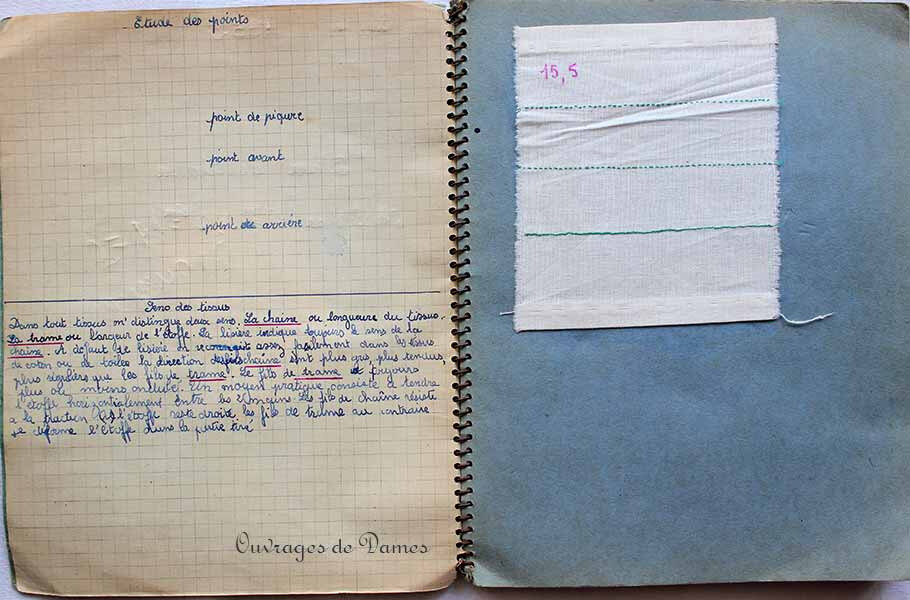 Etude des points
point de piqure
point avant
point de arrière
Sens des tissus
Dans tout tissus on distingue deux sens. La chaine ou longueure du tissus.
La trame ou largeur de l'étoffe. La lisière indique toujours le sens de la
chaine. A défaut de lisière on reconnait assez facilement dans les tissus
de coton ou de toiles la direction des fils chaine sont plus gros, plus tendus,
plus réguliers que les fils de trame. Le fils de trame est toujours
plus ou moins ondulé. Un moyen pratique consiste à tendre
l'étoffe horizontalement entre les mains. Les fils de chaîne résiste
a la traction et l'étoffe reste droite, les fils de trame au contraire
se déforme l'étoffe dans la partie tiré
Ouvrages de Dames
15,5